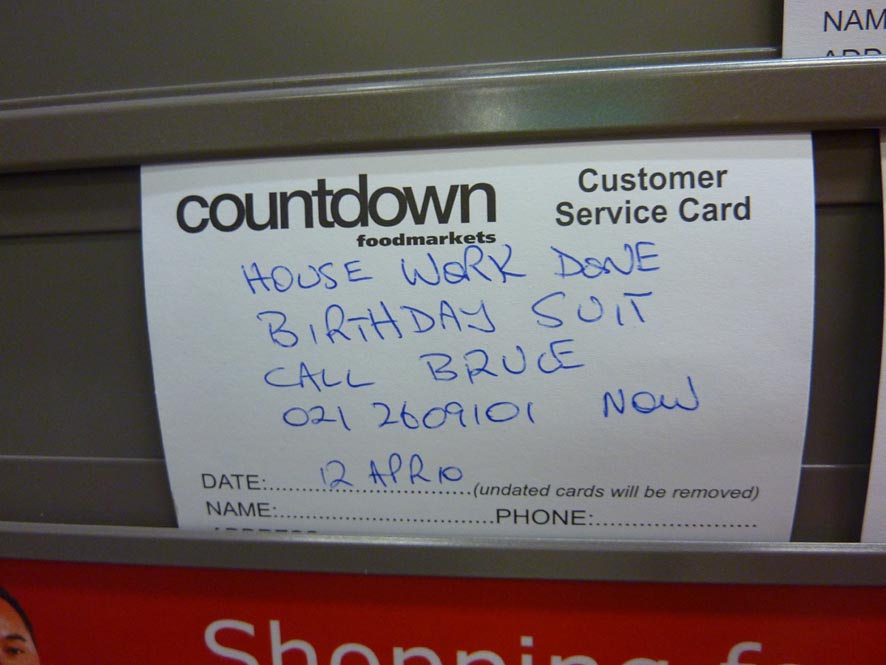 NAM
countdown
foodmarkets
Customer
Service Card
HOUSE WORK DONE
BIRTHDAY SUIT
CALL BRUCE
021 2609101 NOW
DATE:.....12 APR 10.....(undated cards will be removed)
NAME:..........PHONE:..........
Shopping f